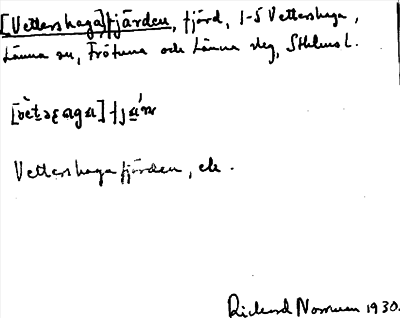 [Vettershaga]fjärden, fjärd, 1-5 Vettershaga,
Länna sn, Frötuna och Länna skg, Sthlms l.
Vettershagafjärden, ek.
Rickard Norrman 1930.